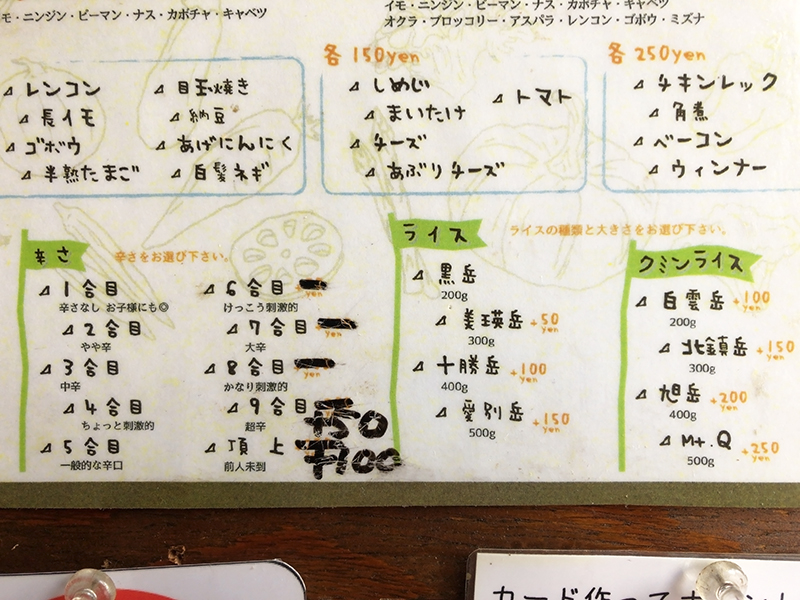 モ・ニンジン・ピーマン・ナス・カボチャ・キャベツ
イモ・ニンジン・ピーマン・ナス・カボチャ・キャベツ
オクラ・ブロッコリー・アスパラ・レンコン・ゴボウ・ミズナ
レンコン
長イモ
ゴボウ
半熟たまご
目玉焼き
納豆
あげにんにく
白髪ネギ
各150yen
しめじ
まいたけ
チーズ
あぶりチーズ
トマト
各250yen
チキンレック
角煮
ベーコン
ウィンナー
辛さ
辛さをお選び下さい。
1合目
辛さなし お子様にも◎
2合目
やや辛
3合目
中辛
4合目
ちょっと刺激的
5合目
一般的な辛口
6合目
yen
けっこう刺激的
7合目
yen
大辛
8合目
yen
かなり刺激的
9合目
超辛
+50
頂上
前人未到
+100
ライス
ライスの種類と大きさをお選び下さい。
黒岳
200g
美瑛岳 +50 yen
300g
十勝岳 +100 yen
400g
愛別岳 +150 yen
500g
クミンライス
白雲岳 +100 yen
200g
北鎮岳 +150 yen
300g
旭岳 +200 yen
400g
Mt.Q +250 yen
500g